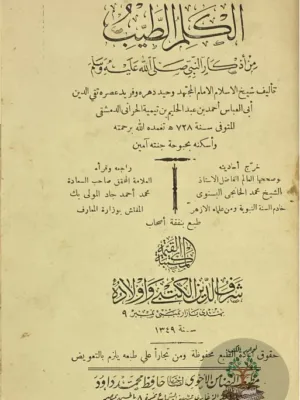 الكلم الطيب
من أذكار النبي صلى الله عليه وسلم
تأليف شيخ الاسلام الامام المجتهد وحيد دهره وفريد عصره تقي الدين
أبى العباس أحمد بن عبد الحليم بن تيمية الحرانى الدمشقى
المتوفى سنة ٧٢٨ هـ تغمده الله برحمته
وأسكنه بحبوحة جنته آمين
خرج أحاديثه
بوصححها العالم الفاضل الاستاذ
الشيخ محمد الخانجى البسنوى
خادم السنة النبوية ومن علماء الازهر
راجعه وقرأه
العلامة المحقق صاحب السعادة
محمد أحمد جاد المولى بك
المفتش بوزارة المعارف
طبع بنفقة أصحاب
المطبعة القيمة
شرف الدين الكتبى وأولاده
بمبئى نمبر ٩
سنة ١٣٤٩
حقوق اعادة الطبع محفوظة ومن تجارأ على طبعه يلزم بالتعويض
حافظ محمد داود